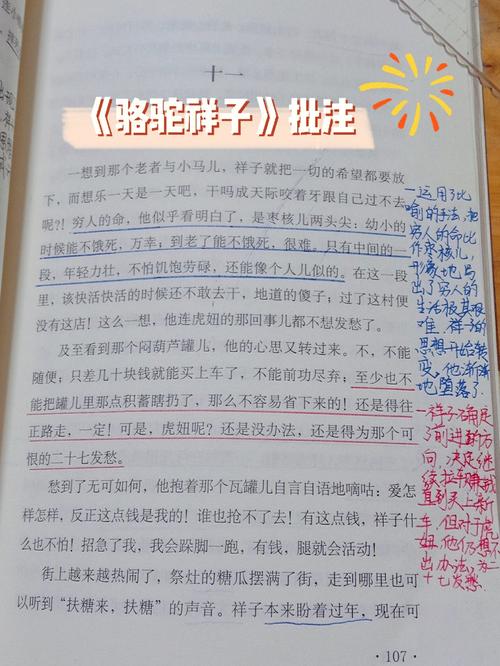 十一
《骆驼祥子》批注
一想到那个老者与小马儿，祥子就把一切的希望都要放
下，而想乐一天是一天吧，干吗成天际咬着牙跟自己过不去
呢？！穷人的命，他似乎看明白了，是枣核儿两头尖：幼小的
时候能不饿死，万幸；到老了能不饿死，很难。只有中间的一
段，年轻力壮，不怕饥饱劳碌，还能像个人儿似的。在这一段
里，该快活快活的时候还不敢去干，地道的傻子；过了这村便
没有这店！这么一想，他连虎妞的那回事儿都不想发愁了。
及至看到那个闷葫芦罐儿，他的心思又转过来。不，不能
随便；只差几十块钱就能买上车了，不能前功尽弃；至少也不
能把罐儿里那点积蓄瞎扔了，那么不容易省下来的！还是得往
正路走，一定！可是，虎妞呢？还是没办法，还是得为那个可
恨的二十七发愁。
愁到了无可如何，他抱着那个瓦罐儿自言自语地嘀咕：爱怎
样怎样，反正这点钱是我的！谁也抢不了去！有这点钱，祥子什
么也不怕！招急了我，我会跺脚一跑，有钱，腿就会活动！
街上越来越热闹了，祭灶的糖瓜摆满了街，走到哪里也可
以听到“扶糖来，扶糖”的声音。祥子本来盼着过年，现在可
·107·
运用了比
喻的手法，把
穷人的命比
作枣核儿，
形象地写
出了穷人的
生活极其艰
难，祥子的
思想开始转
变，他渐渐
地堕落了
祥子确定
了前进的方
向，决定继
续拉车赚钱
直到买上新
车，但对于虎
妞，他仍想不
出办法，为二
十七发愁